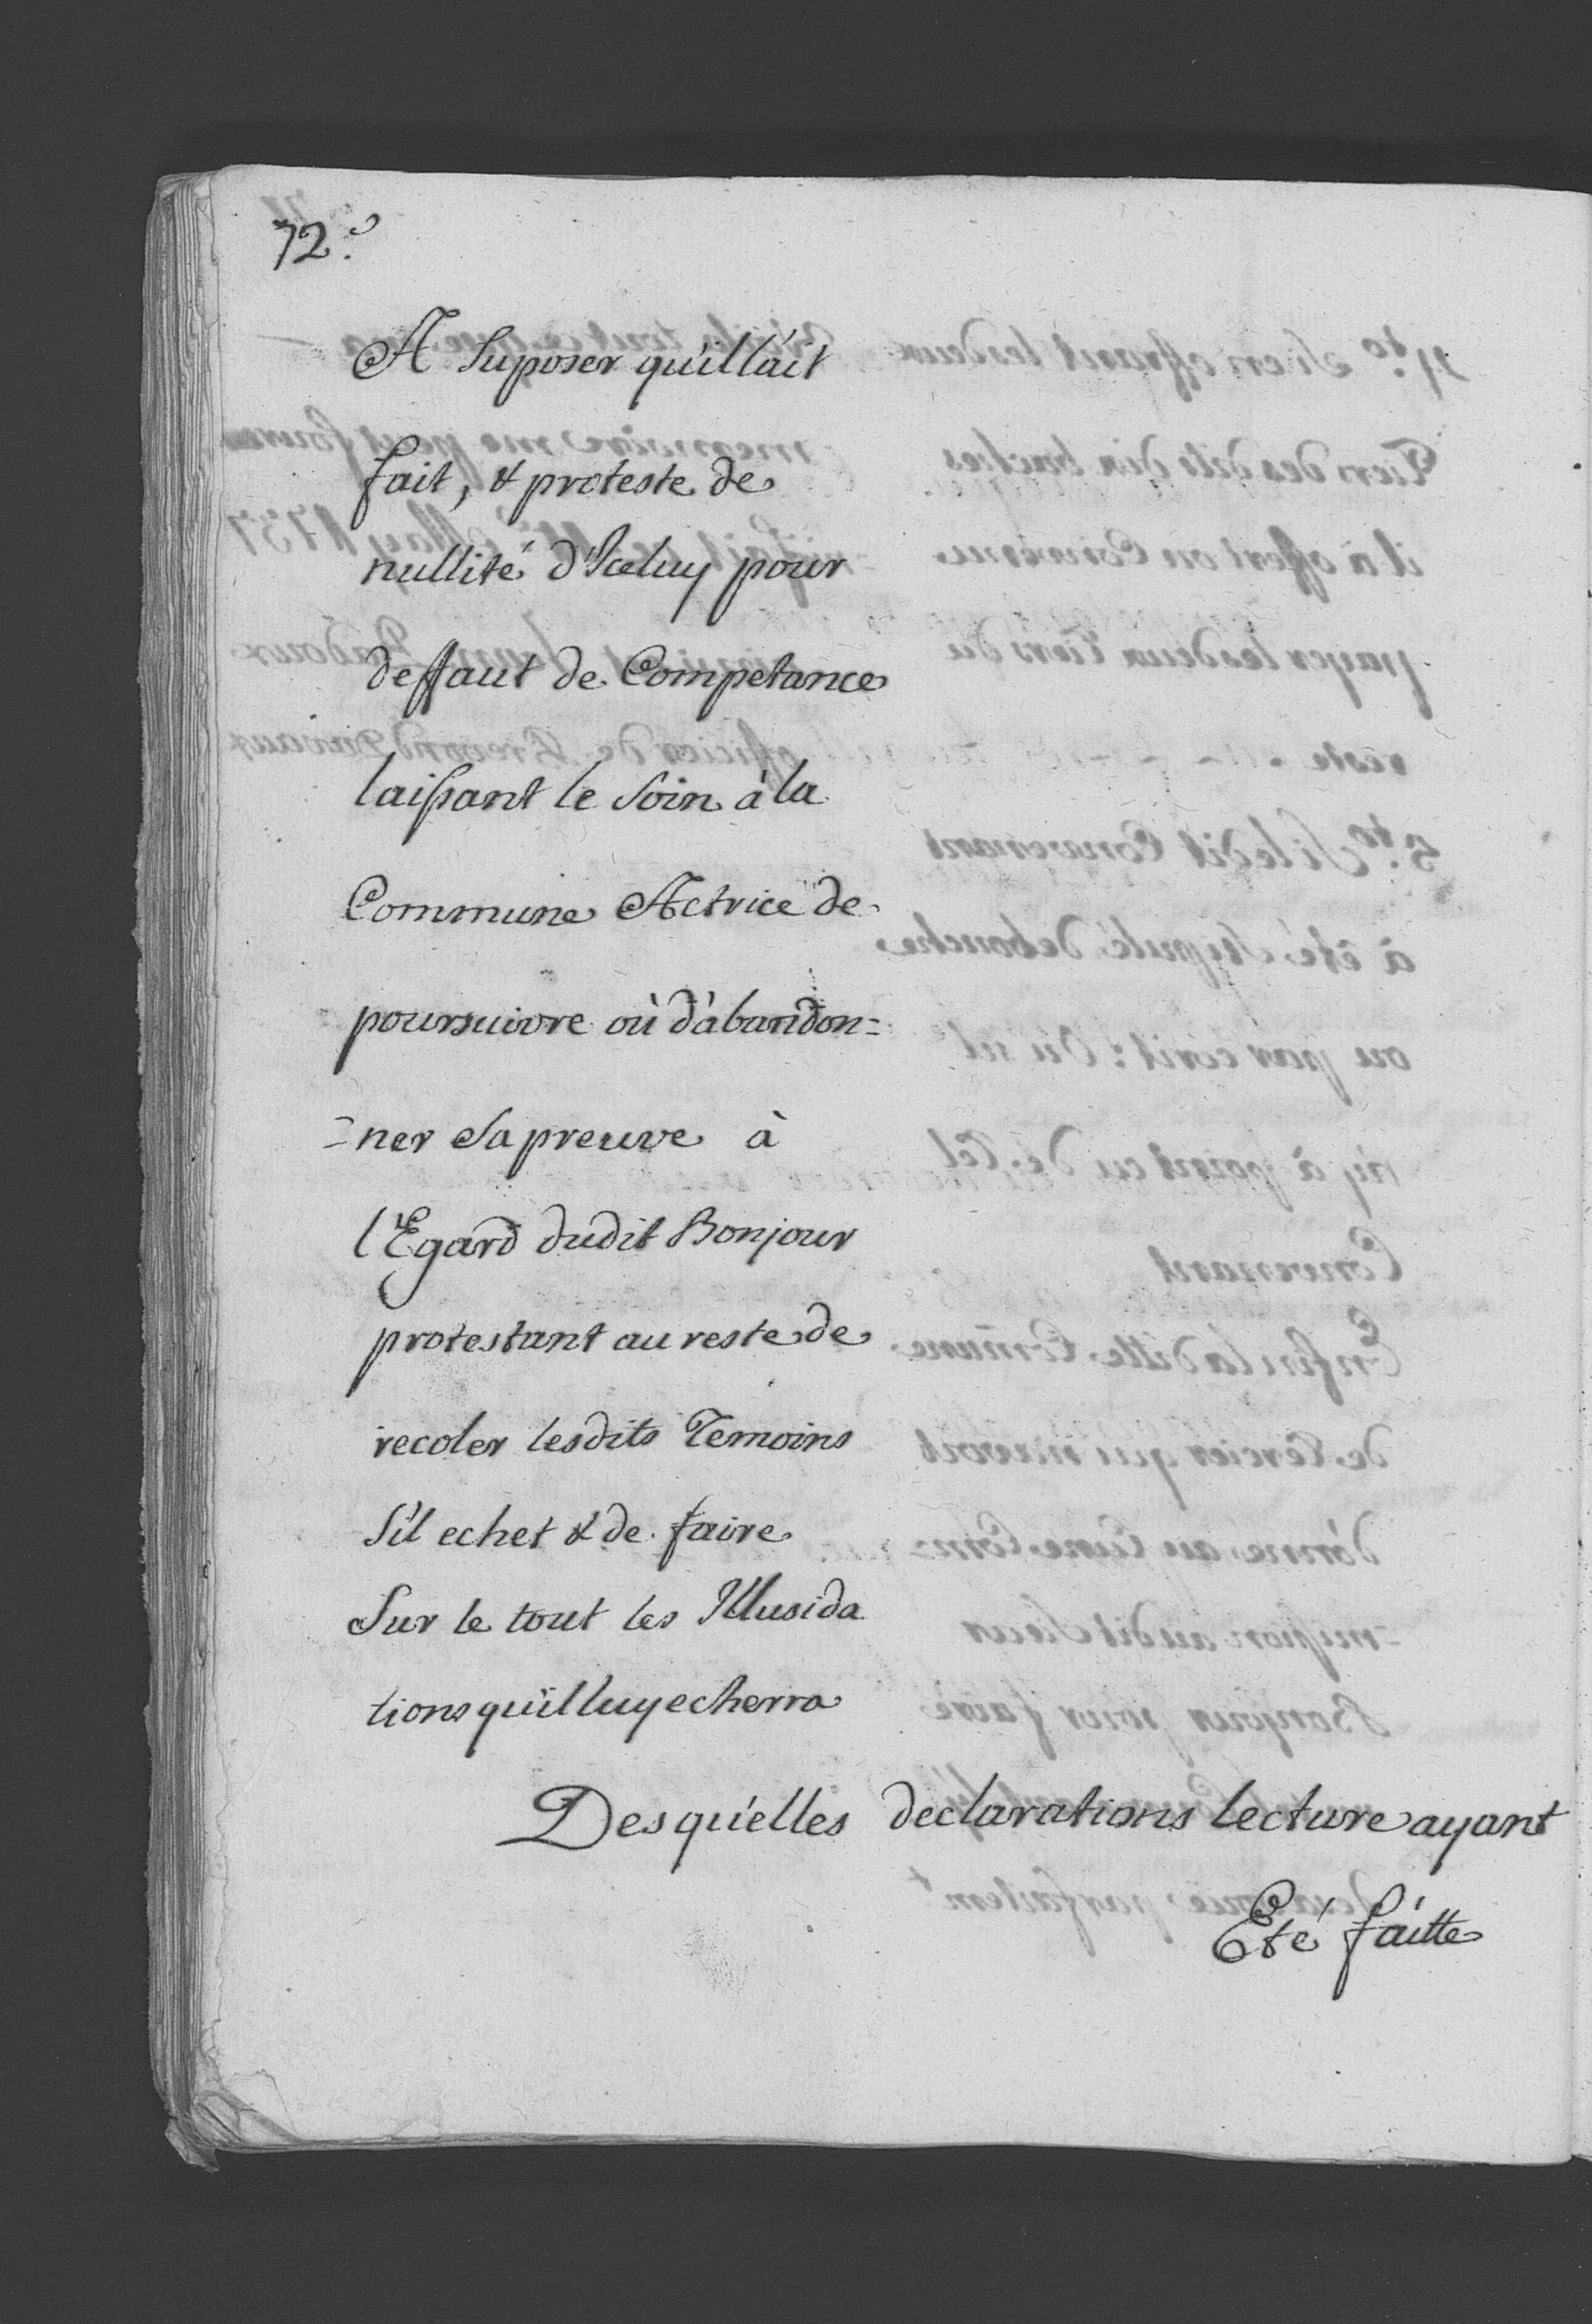 72.
A Suposer qu'ill'ait
fait, & proteste de
nullité d'Iceluy pour
deffaut de Competance
laissant le Soin à la
Commune Actrice de
poursuivre où d'àbandon=
=ner Sa preuve à
l'Egard dudit Bonjour
protestant au reste de
recoler lesdits Temoins
S'il echet & de faire
Sur le tout les Illusida
tions qu'il luy echerra
Desqu'elles declarations lecture ayant
Eté faitte